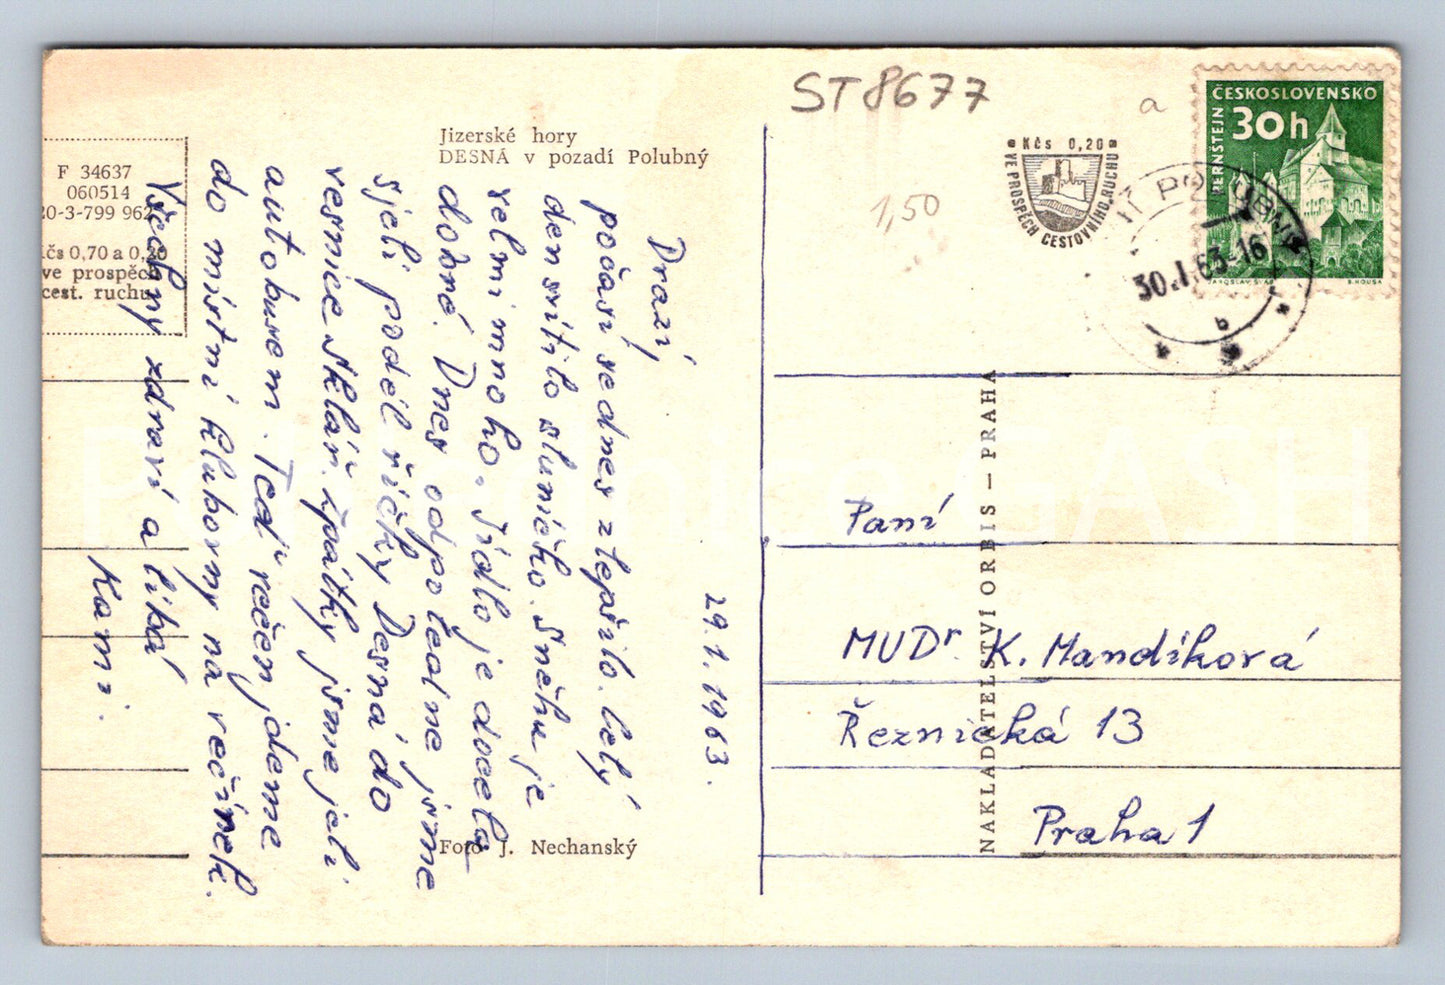 ST8677
a
1,50
Jizerské hory
DESNÁ v pozadí Polubný
F 34637
060514
20-3-799 962
Kčs 0,70 a 0,20
ve prospěch
cest. ruchu
29.1.1963.
Drazí,
počasí se dnes zlepšilo. Celý
den svítilo sluníčko. Sněhu je
velmi mnoho. Jídlo je docela
dobré. Dnes odpoledne jsme
sjeli podél říčky Desná do
vesnice Sklář. Zpátky jsme jeli
autobusem. Teď večer jdeme
do místní klubovny na večírek.
Všechny zdraví a líbá
Kami.
Foto J. Nechanský
NAKLADATELSTVÍ ORBIS — PRAHA
Kčs 0,20
VE PROSPĚCH CESTOVNÍHO RUCHU
ČESKOSLOVENSKO
30h
PERNŠTEJN
JAROSLAV ŠVÁB
B. HOUSA
POLUBNÝ
30.1.63-16
b
Paní
MUDr K. Mandíková
Řeznická 13
Praha 1